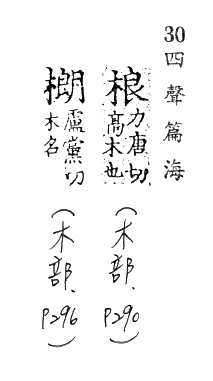 30 四聲篇海
桹 力唐切 高木也 （木部、P290）
樃 盧黨切 木名 （木部、P296）